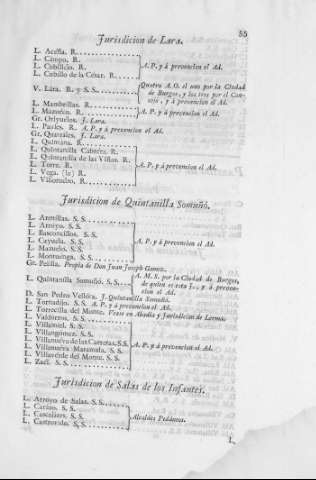 55
Jurisdicion de Lara.
L. Aceña. R.
L. Campo. R.
L. Cubillejo. R. A. P. y á prevencion el Ad.
L. Cubillo de la César. R.
V. Lara. R. y S. S. Quatro A. O. el uno por la Ciudad
de Burgos, y los tres por el Con-
cejo, y á prevencion el Ad.
L. Mambrillas. R.
L. Mazueco. R. A. P. y á prevencion el Ad.
Gr. Orijuelos. J. Lara.
L. Paules. R. A. P. y á prevencion el Ad.
Gr. Quartales. J. Lara.
L. Quintana. R.
L. Quintanilla Cabrera. R.
L. Quintanilla de las Viñas. R.
L. Torre. R. A. P. y á prevencion el Ad.
L. Vega. (la) R.
L. Villoruebo. R.
Jurisdicion de Quintanilla Somuñó.
L. Arenillas. S. S.
L. Arroyo. S. S.
L. Basconcillos. S. S.
L. Cayuela. S. S. A. P. y á prevencion el Ad.
L. Mazuelo. S. S.
L. Montuenga. S. S.
Gr. Pelilla. Propia de Don Juan Joseph Gomez.
L. Quintanilla Somuñó. S. S. A. M. S. por la Ciudad de Burgos,
de quien es esta J., y á preven-
cion el Ad.
D. San Pedro J. Quintanilla Somuñó.
L. Tornadijo. S. S. A. P. y á prevencion el Ad.
L. Torrecilla del Monte. Vease en Abadía y Jurisdicion de Lerma.
L. Valdorros. S. S.
L. Villamiel. S. S.
L. Villangomez. S. S.
L. Villanueva de las Carretas. S. S.
L. Villanueva Matamala. S. S. A. P. y á prevencion el Ad.
L. Villaverde del Monte. S. S.
L. Zael. S. S.
Jurisdicion de Salas de los Infantes.
L. Arroyo de Salas. S. S.
L. Carazo. S. S.
L. Cascajares. S. S. Alcaldes Pedáneos.
L. Castrovido. S. S.
L.